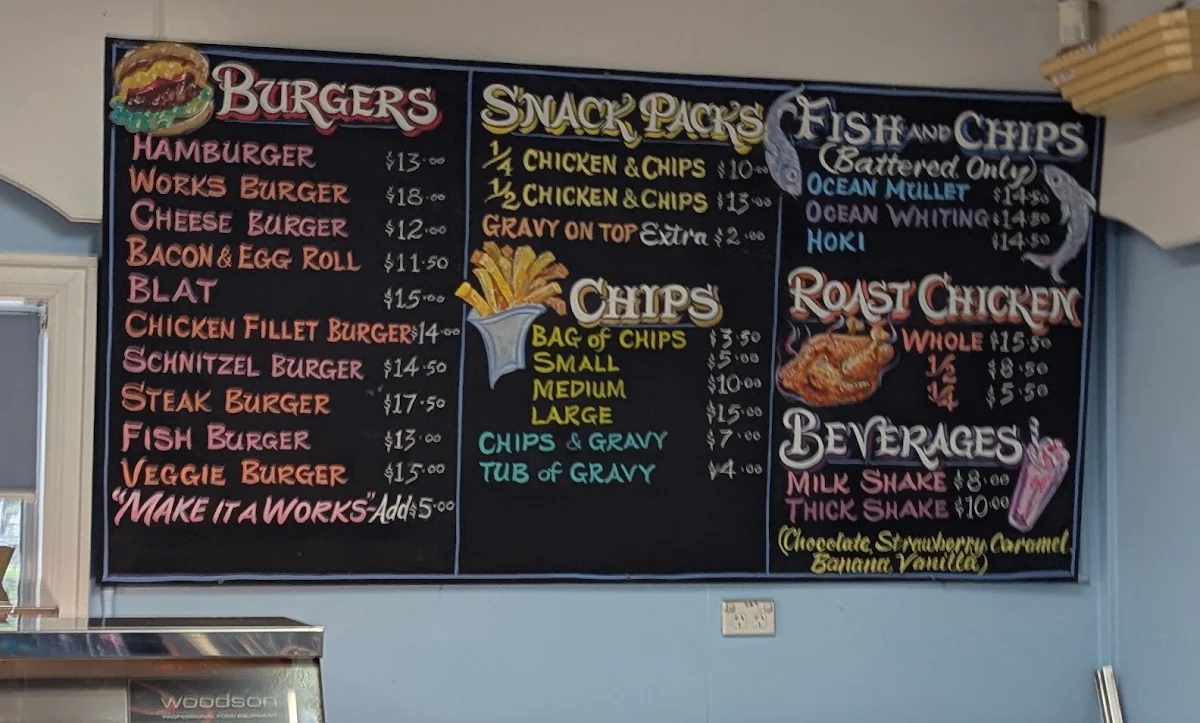 BURGERS
HAMBURGER $13.00
WORKS BURGER $18.00
CHEESE BURGER $12.00
BACON & EGG ROLL $11.50
BLAT $15.00
CHICKEN FILLET BURGER $14.00
SCHNITZEL BURGER $14.50
STEAK BURGER $17.50
FISH BURGER $13.00
VEGGIE BURGER $15.00
"MAKE IT A WORKS" Add $5.00
SNACK PACKS
1/4 CHICKEN & CHIPS $10.00
1/2 CHICKEN & CHIPS $13.00
GRAVY ON TOP Extra $2.00
CHIPS
BAG of CHIPS $3.50
SMALL $5.00
MEDIUM $10.00
LARGE $15.00
CHIPS & GRAVY $7.00
TUB of GRAVY $4.00
FISH AND CHIPS
(Battered Only)
OCEAN MULLET $14.50
OCEAN WHITING $14.50
HOKI $14.50
ROAST CHICKEN
WHOLE $15.50
1/2 $8.50
1/4 $5.50
BEVERAGES
MILK SHAKE $8.00
THICK SHAKE $10.00
(Chocolate, Strawberry, Caramel
Banana, Vanilla)
woodson
PROFESSIONAL FOOD EQUIPMENT